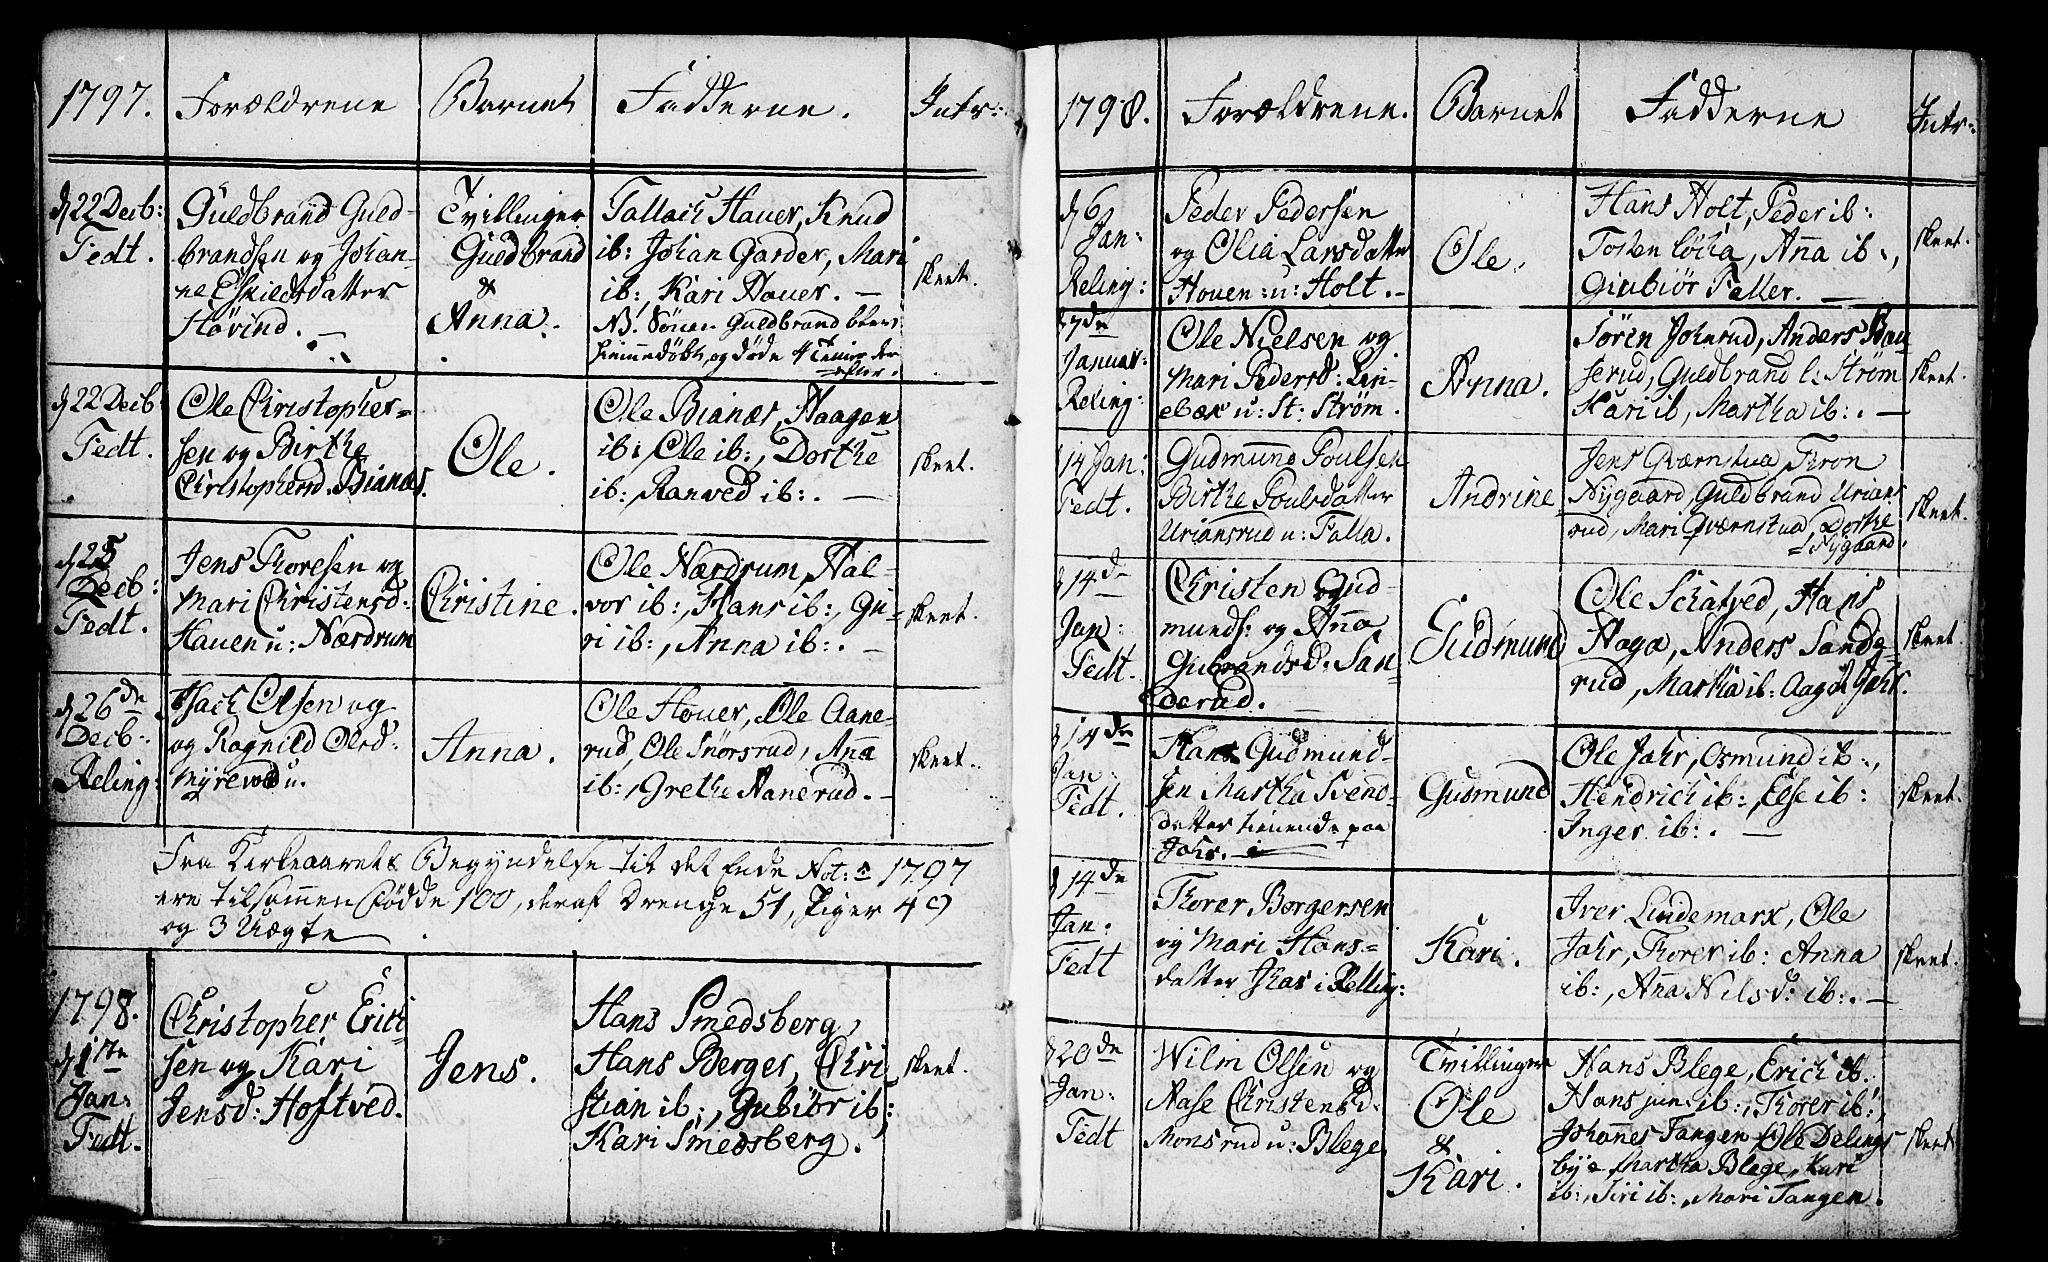 1797. Forældrene Barnet Fadderne. Intr:
d 22 Decb: Fedt.
Guldbrand Guld-
brandsen og Johan-
ne Eskildsdatter
Hövind. —
Tvillinger
Guldbrand
&
Anna.
Tallach Hauer, Knud
ib: Johan Garder, Mari
ib:, Kari Hauer. —
NB. Sönen Guldbrand blev
hiemmedöbt, og döde 4 Timer der
efter.
skeet.
d 22 Decb Fedt.
Ole Christopher-
sen og Birthe
Christophersd. Bianæs.
Ole.
Ole Bianæs, Haagen
ib: Ole ib:, Dorthe
ib: Ranved ib:. —
skeet.
d 25 Decb: Fedt.
Jens Thoresen og
Mari Christensd:
Hauen u: Nærdrum
Christine.
Ole Nærdrum, Hal-
vor ib:, Hans ib:, Gu-
ri ib:, Anna ib:. —
skeet.
d 26de Decb: Reling:
Isach Olsen og
og Ragnild Olsd:
Myrevold u.
Anna.
Ole Houer, Ole Aane-
rud, Ole Snörsrud, Anna
ib:, Grethe Aanerud. —
skeet.
Fra Kirkeaarets Begyndelse til det Ende 1797
ere tilsammen födde 100, deraf Drenge 51, Piger 49
og 3 Uægte
1798.
d 1ste Jan: Fedt.
Christopher Erich-
sen og Kari
Jensd: Hoftved.
Jens.
Hans Smedsberg,
Hans Berger, Chri
stian ib:, Gubiör ib:
Kari Smedsberg.
skeet.
1798. Forældrene. Barnet Fadderne Intr:
d 6 Jan: Reling:
Peder Pedersen
og Olia Larsdatter
Houen u: Holt. —
Ole.
Hans Holt, Peder ib:
Tosten Löcha, Anna ib:,
Giubiör Faller. —
skeet.
d 7de Januar: Reling:
Ole Nielsen og
Mari Pedersd: Lin-
ebæk u: St: Ström.
Anna.
Sören Johnrud, Anders Hau
serud, Guldbrand l: Ström
Kari ib, Martha ib:. —
skeet.
d 14 Jan: Fedt.
Gudmund Poulsen
Birthe Poulsdatter
Uriansrud u: Falla.
Andrine
Jens Qværnstua Thron
Nygaard, Guldbrand Urians
rud, Mari Qværnstua, Dorthe
Nygaard.
skeet.
d 14de Jan: Fedt.
Christen Gud-
munds: og Anna
Gubrandsd. San-
derud.
Gudmund
Ole Schatved, Hans
Haga, Anders Sande
rud, Martha ib: Aagot Jahr.
skeet.
d 14de Jan: Fedt.
Hans Gudmund
sen Martha Svend
datter tienende paa
Jahr. —
Gudmund
Ole Jahr, Osmund ib:,
Hendrich ib:, Else ib:
Inger ib:. —
skeet.
d 14de Jan: Fedt
Thorer Borgersen
og Mari Hans-
datter Ihas i Relling:
Kari.
Iver Lindemark, Ole
Jahr, Thorer ib: Anna
ib:, Anna Nilsd: ib:. —
skeet.
d 20de Jan: Fedt
Wilm Olsen og
Aase Christensd.
Monsrud u: Blege
Tvillinger
Ole
&
Kari.
Hans Blege, Erich ib.
Hans jun: ib:, Thorer ib:,
Johannes Tangen, Ole Delings
bye, Martha Blege, Kari
ib:, Siri ib:, Mari Tangen.
skeet